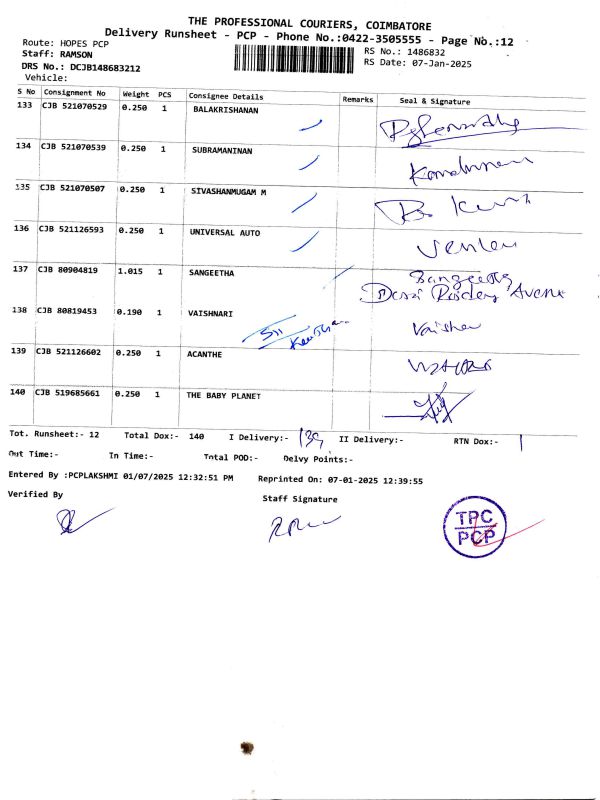 THE PROFESSIONAL COURIERS, COIMBATORE
Delivery Runsheet - PCP - Phone No.:0422-3505555 - Page No.:12
Route: HOPES PCP
RS No.: 1486832
Staff: RAMSON
RS Date: 07-Jan-2025
DRS No.: DCJB148683212
Vehicle:
S No Consignment No Weight PCS Consignee Details Remarks Seal & Signature
133 CJB 521070529 0.250 1 BALAKRISHANAN
134 CJB 521070539 0.250 1 SUBRAMANINAN
135 CJB 521070507 0.250 1 SIVASHANMUGAM M
136 CJB 521126593 0.250 1 UNIVERSAL AUTO
137 CJB 80904819 1.015 1 SANGEETHA Sangeetha
Avenue
138 CJB 80819453 0.190 1 VAISHNARI
Sri
139 CJB 521126602 0.250 1 ACANTHE
140 CJB 519685661 0.250 1 THE BABY PLANET
Tot. Runsheet:- 12 Total Dox:- 140 I Delivery:- 139 II Delivery:- RTN Dox:- 1
Out Time:- In Time:- Total POD:- Delvy Points:-
Entered By :PCPLAKSHMI 01/07/2025 12:32:51 PM Reprinted On: 07-01-2025 12:39:55
Verified By Staff Signature
TPC
PCP